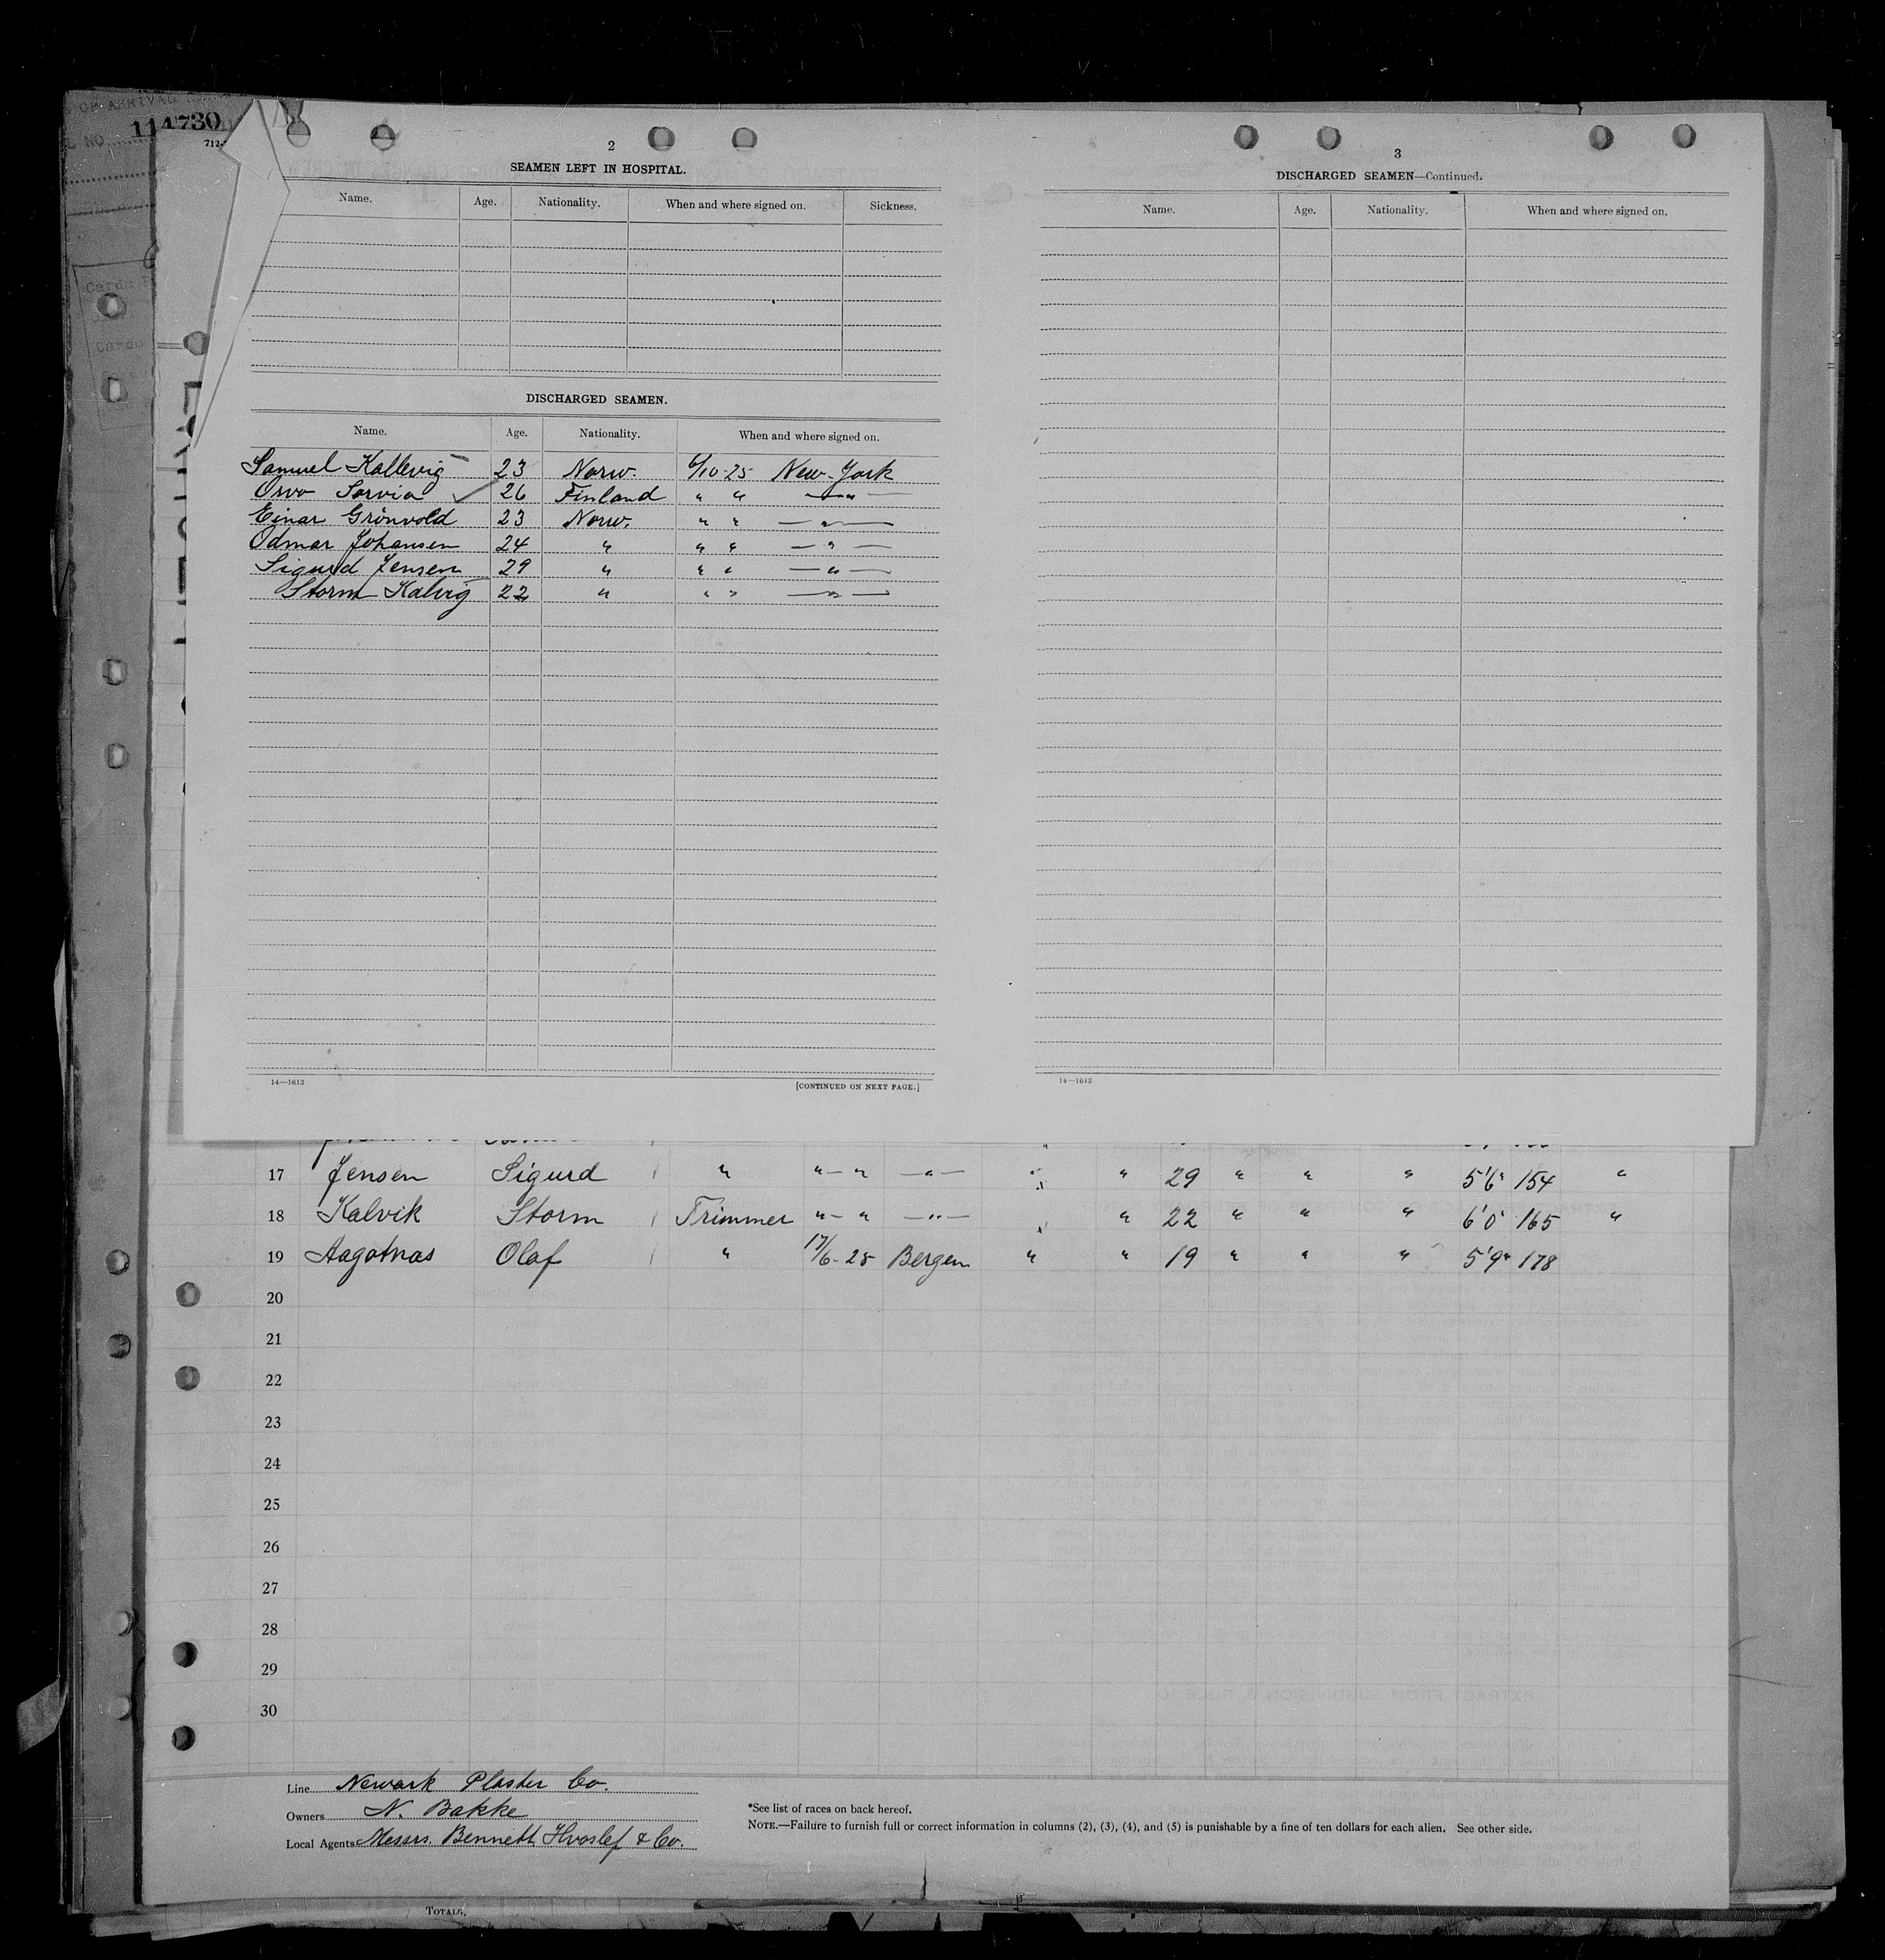 OF ARRIVAL
NO. 114730
712-
Cards
Cards
2
SEAMEN LEFT IN HOSPITAL.
Name. Age. Nationality. When and where signed on. Sickness.
DISCHARGED SEAMEN.
Name. Age. Nationality. When and where signed on.
Samuel Kallevig 23 Norw. 6/10-25 New-York
Orvo Sarvia ✓ 26 Finland " " —"—
Einar Grönvold 23 Norw. " " —"—
Odmar Johansen 24 " " " —"—
Sigurd Jensen 29 " " " —"—
Storm Kalvig 22 " " " —"—
14—1613 [CONTINUED ON NEXT PAGE.]
3
DISCHARGED SEAMEN—Continued.
Name. Age. Nationality. When and where signed on.
14—1613
17 Jensen Sigurd " "—" —"— " " 29 " " " 5'6" 154 "
18 Kalvik Storm Trimmer "—" —"— " 22 " " " 6'0" 165 "
19 Aagotnas Olaf " 17/6-25 Bergen " " 19 " " " 5'9" 178
20
21
22
23
24
25
26
27
28
29
30
Line Newark Plaster Co.
Owners N. Bakke
Local Agents Messrs. Bennett Hvoslef & Co.
*See list of races on back hereof.
NOTE.—Failure to furnish full or correct information in columns (2), (3), (4), and (5) is punishable by a fine of ten dollars for each alien. See other side.
TOTALS,